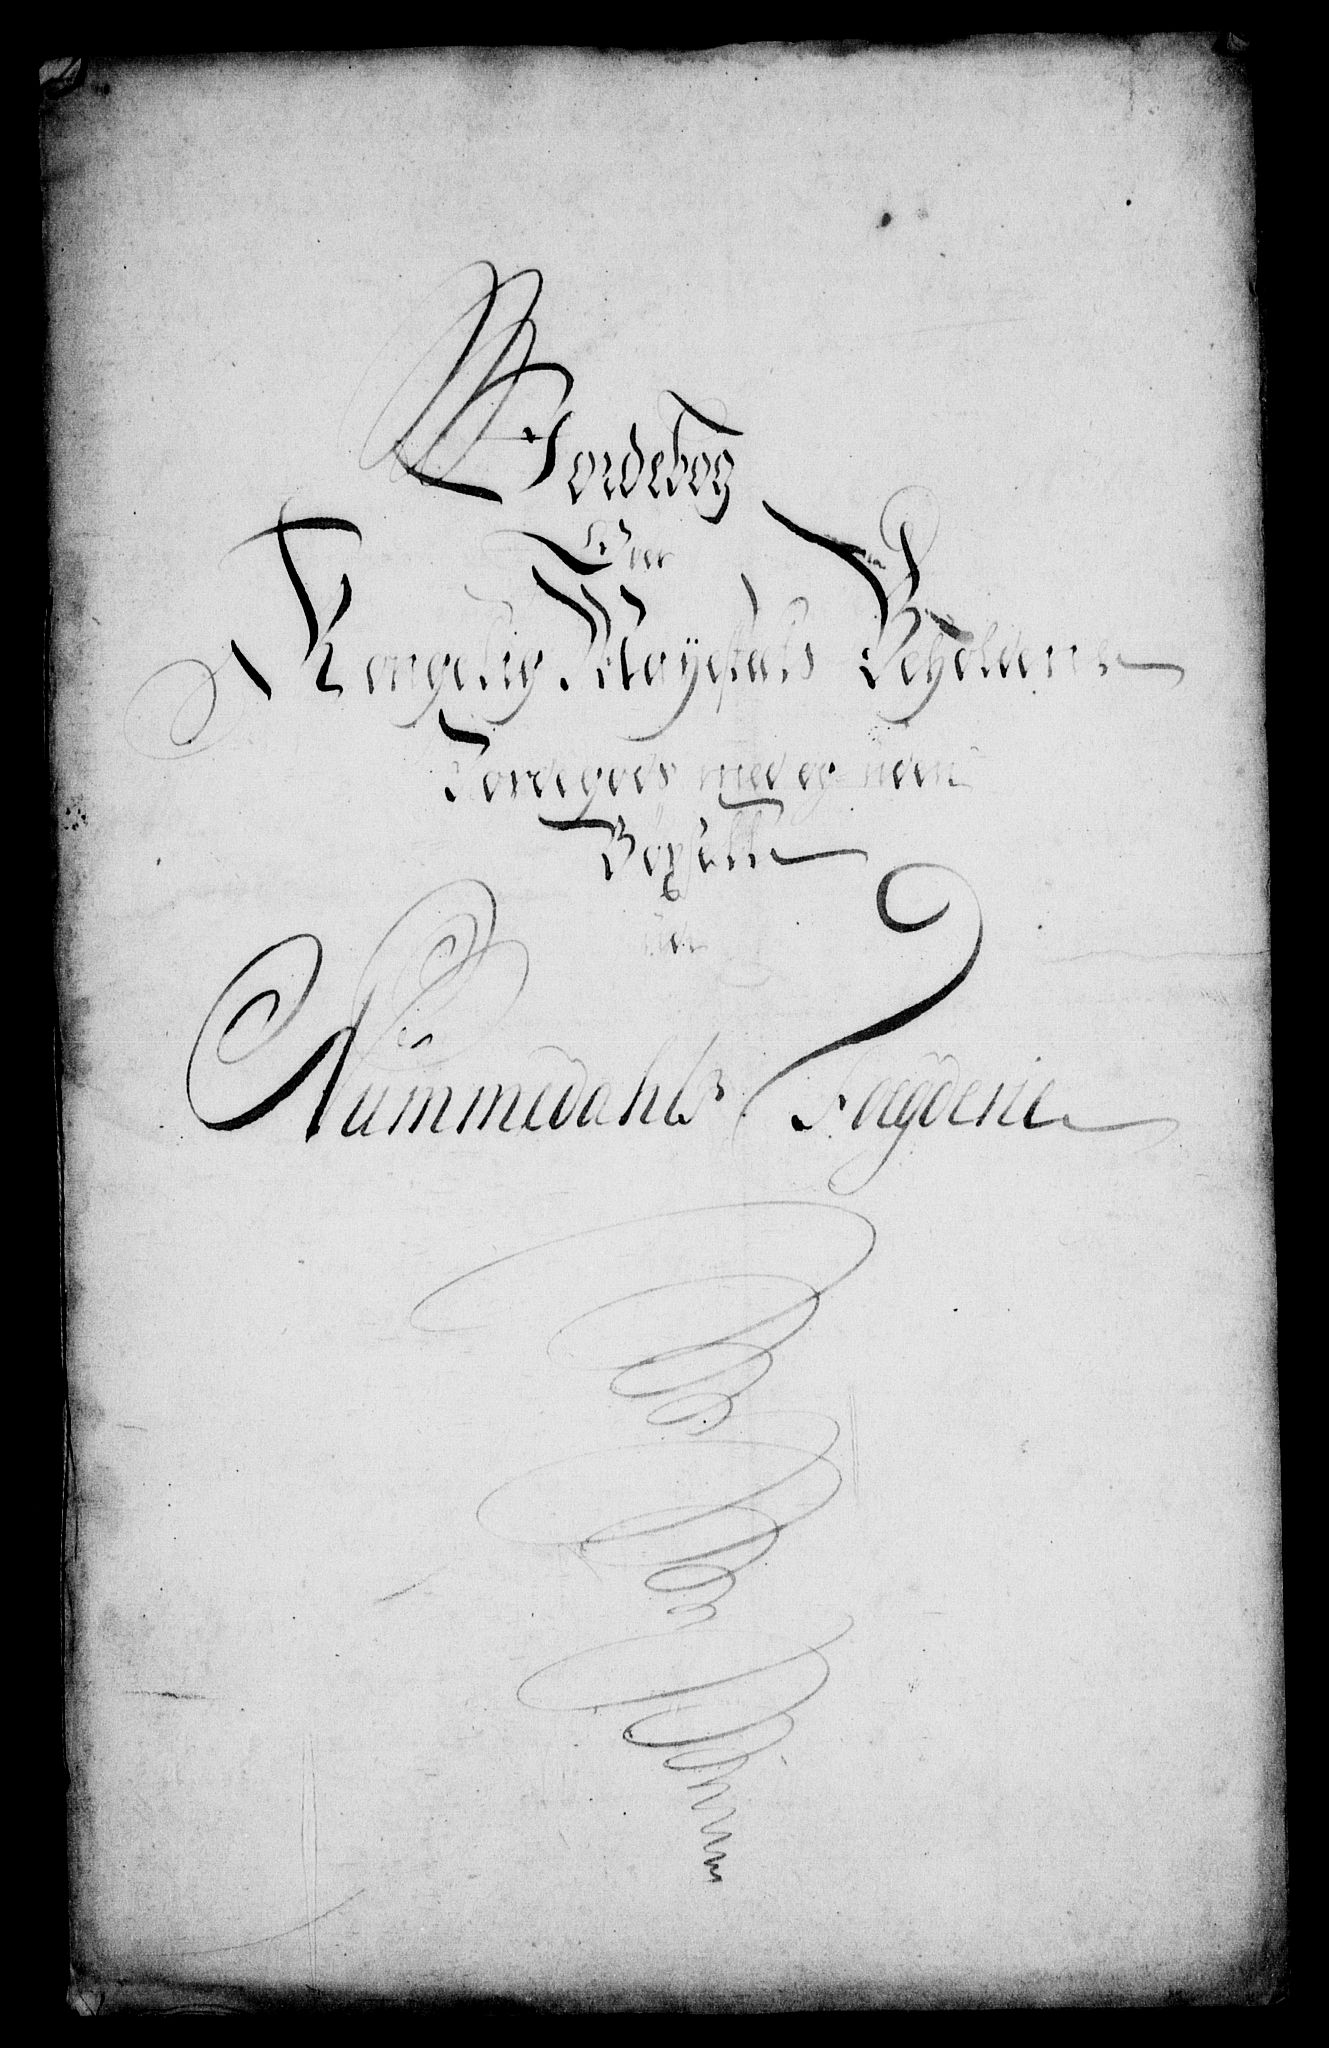 Jordebog
Over
Kongelig Mayestets Beholdene
Jordegods med og uden
Böxsell
Nummedahls Foegderie